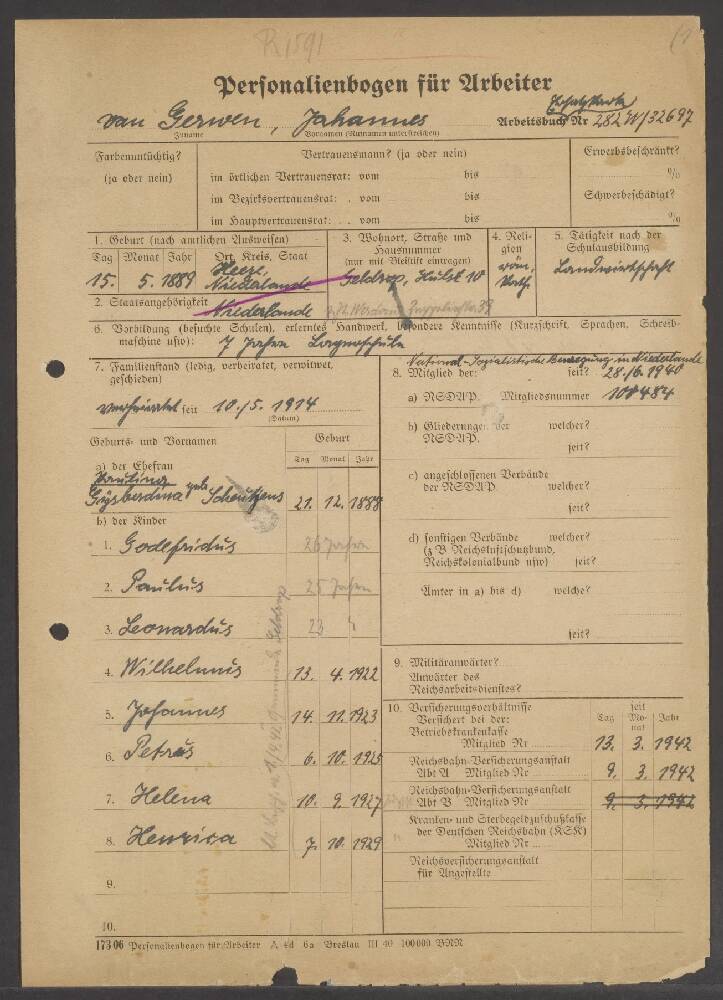 R 1591
Personalienbogen für Arbeiter
van Gerwen, Johannes
Arbeitsbuch Nr 282 W/32697
Zuname
Vornamen (Rufnamen unterstreichen)
Farbenuntüchtig?
(ja oder nein)
Vertrauensmann? (ja oder nein)
im örtlichen Vertrauensrat: vom bis
im Bezirksvertrauensrat: . vom bis
im Hauptvertrauensrat: . . vom bis
Erwerbsbeschränkt?
%
Schwerbeschädigt?
%
1. Geburt (nach amtlichen Ausweisen)
Tag Monat Jahr Ort, Kreis, Staat
15. 5. 1889 Heeze, Niederlande
2. Staatsangehörigkeit Niederlande
3. Wohnort, Straße und
Hausnummer
(nur mit Bleistift eintragen)
Geldrop, Hulst 10
4. Reli-
gion
röm.
kath.
5. Tätigkeit nach der
Schulausbildung
Landwirtschaft
6. Vorbildung (besuchte Schulen, erlerntes Handwerk, besondere Kenntnisse (Kurzschrift, Sprachen, Schreib-
maschine usw): 7 Jahre
7. Familienstand (ledig, verheiratet, verwitwet,
geschieden)
verheiratet seit 10./5. 1914
(Datum)
Geburts- und Vornamen
Geburt
Tag Monat Jahr
a) der Ehefrau
Paulina
Gijsberdina geb. Scheutjens 21. 12. 1888
b) der Kinder
1. Godefridus 26 Jahre
2. Paulus 25 Jahre
3. Leonardus 23 "
4. Wilhelmus 13. 4. 1922
5. Johannes 14. 11. 1923
6. Petrus 6. 10. 1925
7. Helena 10. 9. 1927
8. Henrica 7. 10. 1929
9.
10.
National-Sozialistische Bewegung in Niederlande
8. Mitglied der: seit? 28./6. 1940
a) NSDAP. Mitgliedsnummer 108484
b) Gliederungen der welcher?
NSDAP.
seit?
c) angeschlossenen Verbände
der NSDAP. welcher?
seit?
d) sonstigen Verbände welcher?
(z B Reichsluftschutzbund,
Reichskolonialbund usw) seit?
Ämter in a) bis d) welche?
seit?
9. Militäranwärter?
Anwärter des
Reichsarbeitsdienstes?
10. Versicherungsverhältnisse
Versichert bei der:
seit
Tag Mo-
nat Jahr
Betriebskrankenkasse
Mitglied Nr 13. 3. 1942
Reichsbahn-Versicherungsanstalt
Abt A Mitglied Nr 9. 3. 1942
Reichsbahn-Versicherungsanstalt
Abt B Mitglied Nr 9. 3. 1942
Kranken- und Sterbegeldzuschußkasse
der Deutschen Reichsbahn (KSK)
Mitglied Nr
Reichsversicherungsanstalt
für Angestellte
173 06 Personalienbogen für Arbeiter A 4d 6a Breslau III 40 100 000 BNN